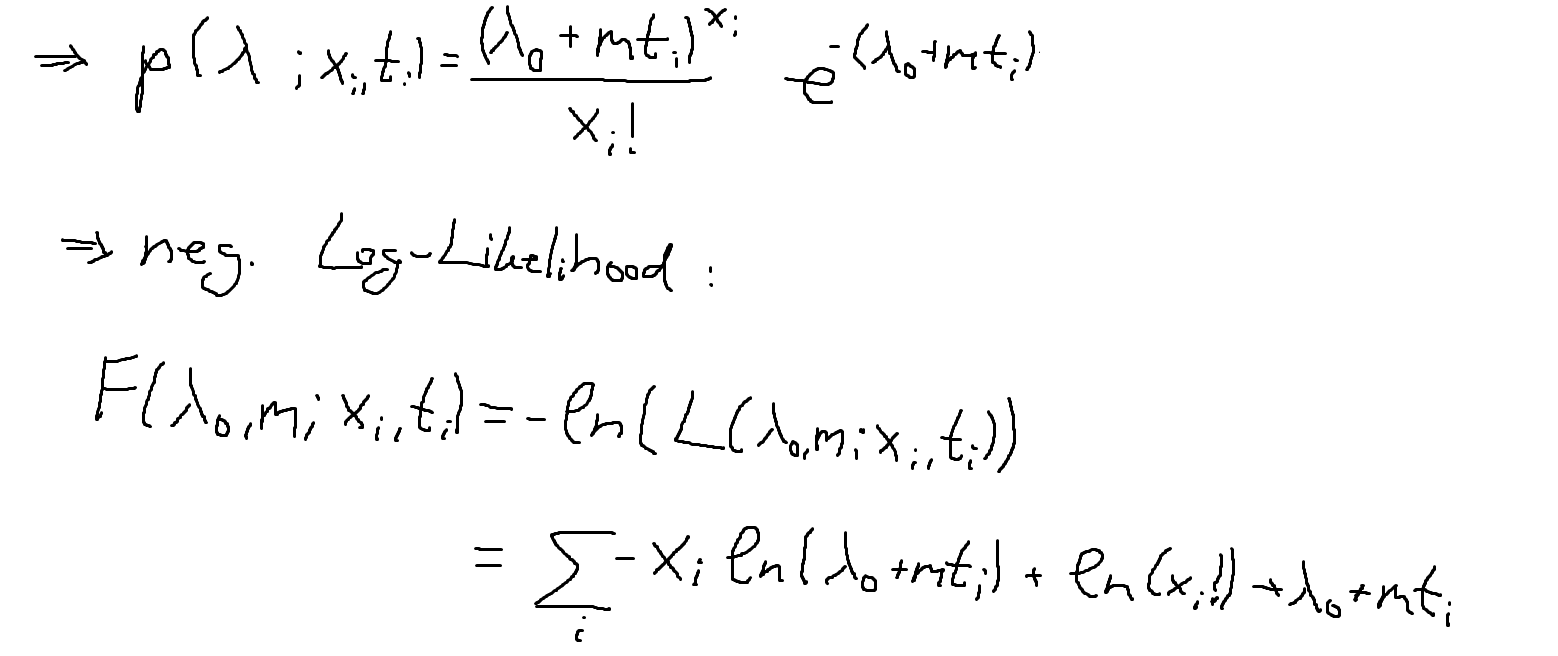 ⇒ p(λ ; xᵢ, tᵢ) = (λ₀ + mtᵢ)^xᵢ / xᵢ! e^-(λ₀+mtᵢ)
⇒ neg. Log-Likelihood :
F(λ₀, m; xᵢ, tᵢ) = - ln(L(λ₀, m; xᵢ, tᵢ))
= ∑ᵢ - xᵢ ln(λ₀ + mtᵢ) + ln(xᵢ!) + λ₀ + mtᵢ